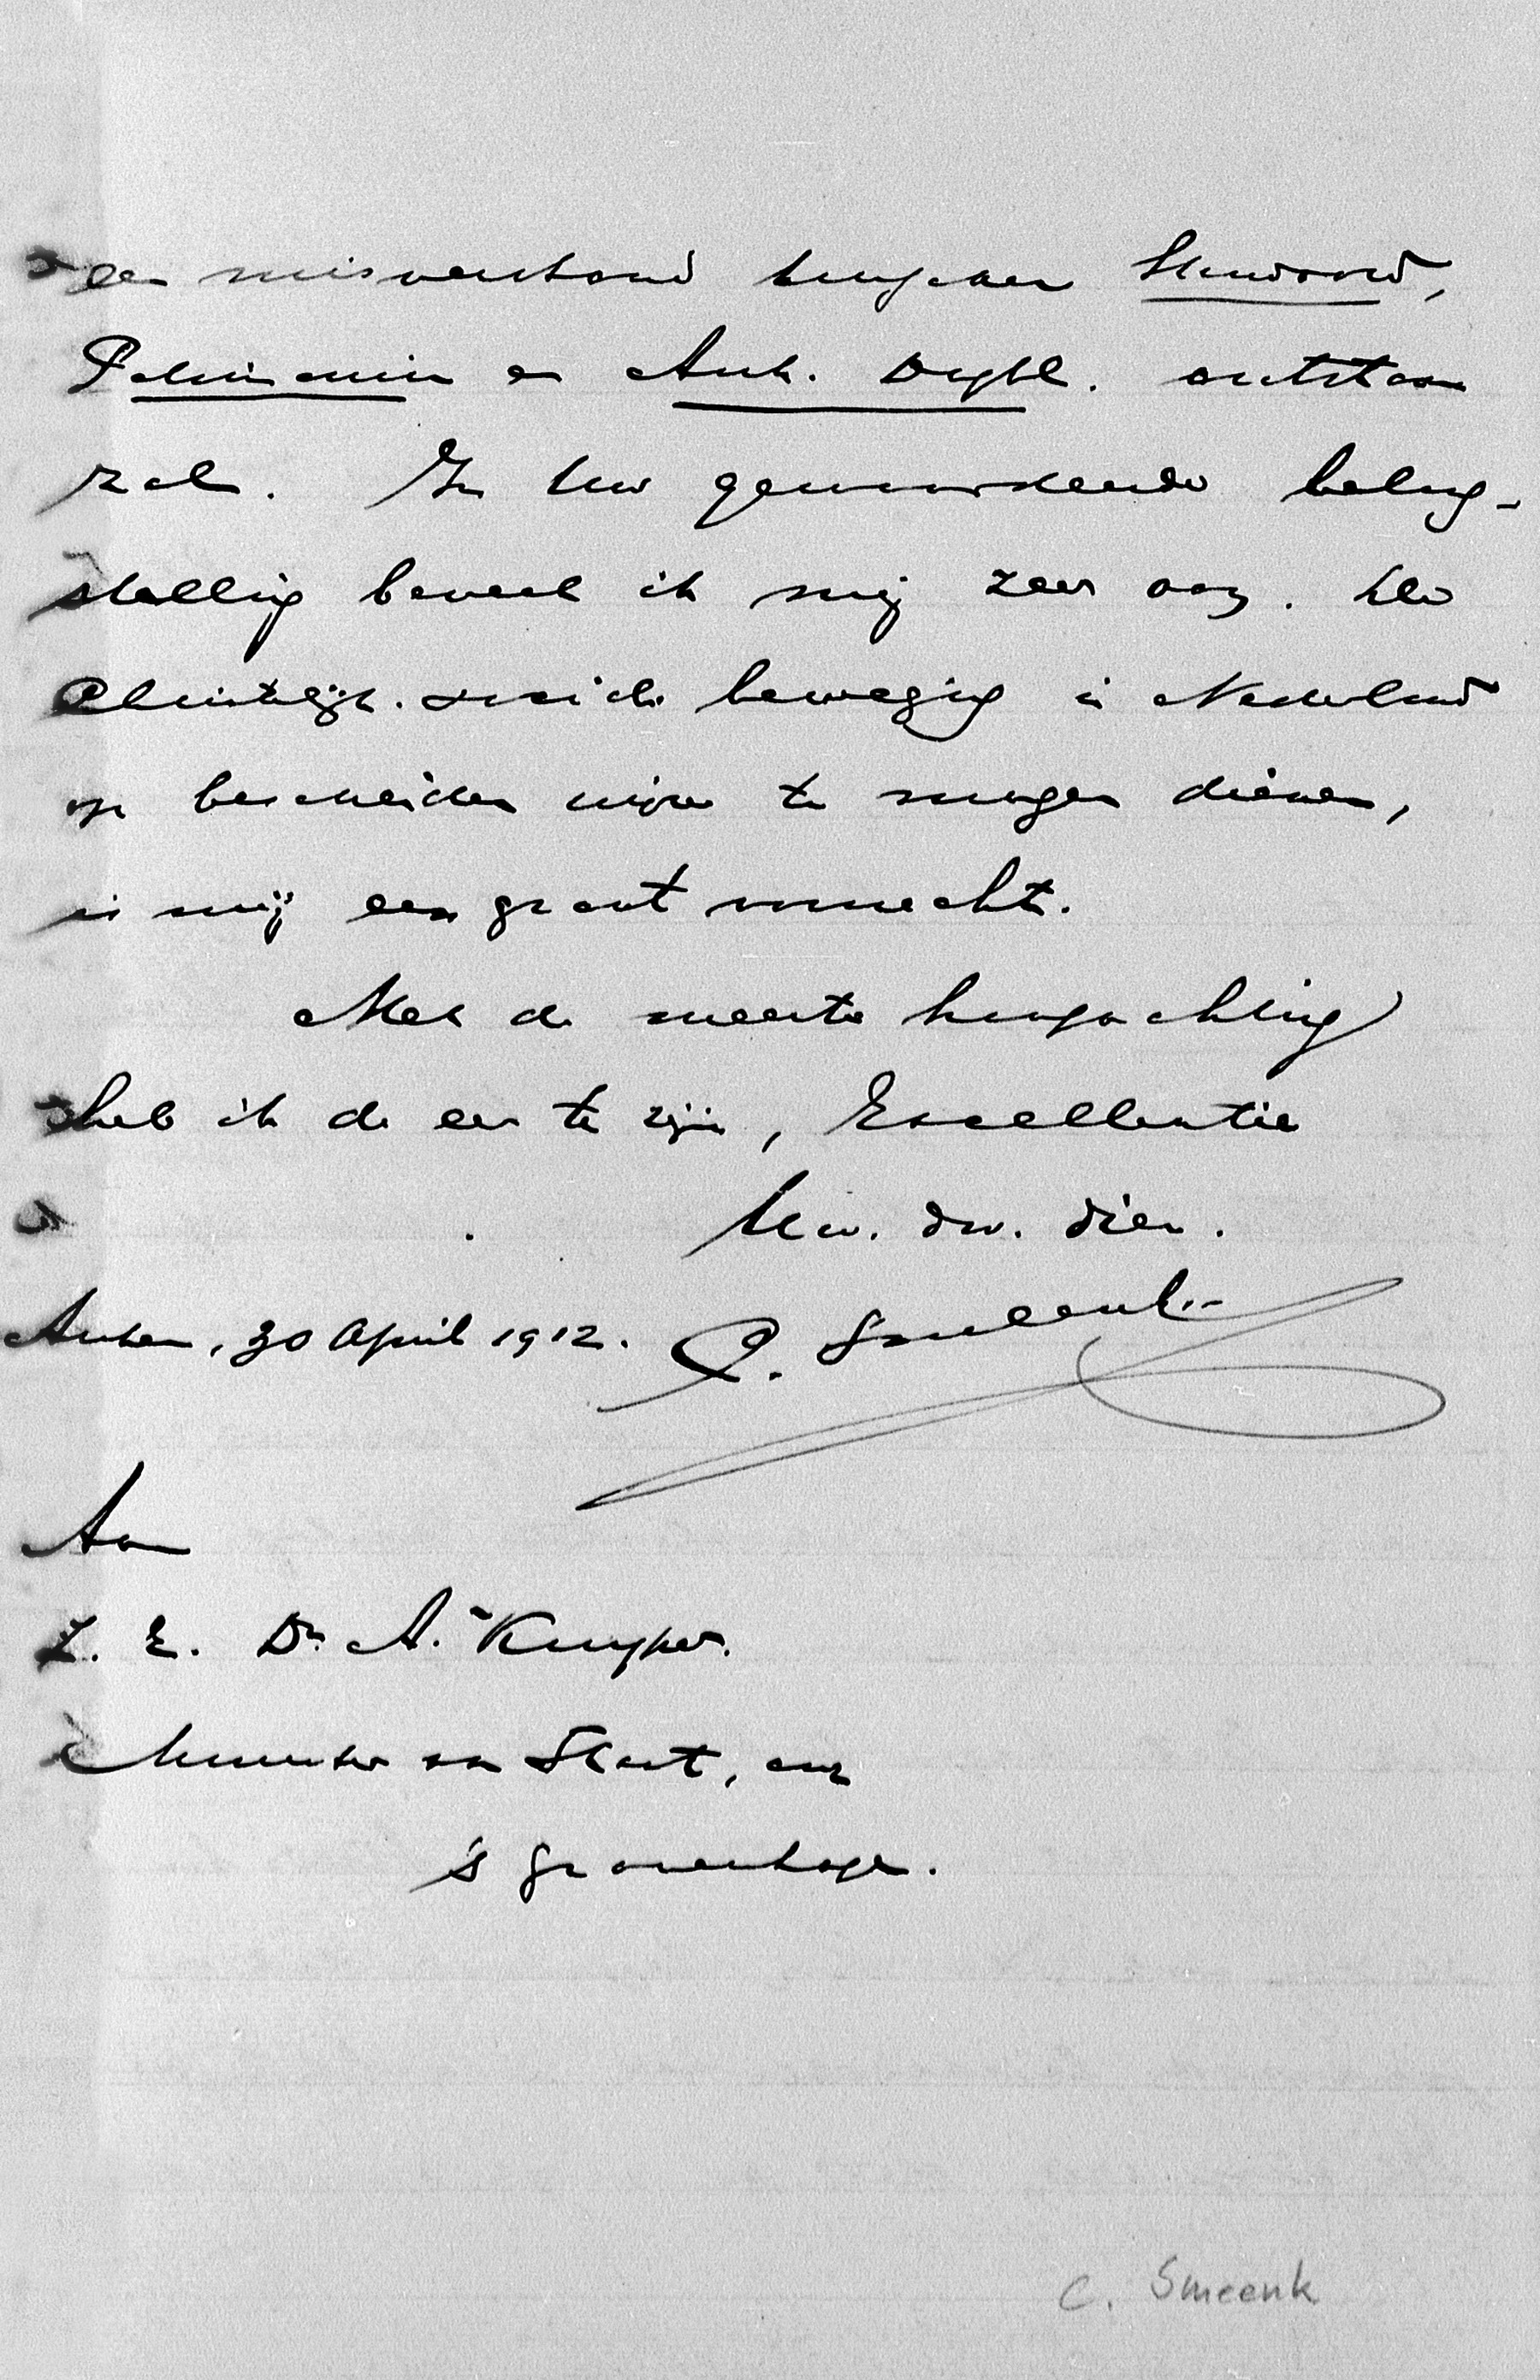 een misverstand tusschen Standaard,
Patrimonium en Arnh. Dagbl. ontstaan
zal. In Uw gewaardeerde belang-
stelling beveel ik mij zeer aan. De
Christelijk-sociale beweging in Nederland
op bescheiden wijze te mogen dienen,
is mij een groot voorrecht.
Met de meeste hoogachting
heb ik de eer te zijn, Excellentie
Uw. dw. dien.
Arnhem, 30 April 1912. C. Smeenk
Aan
Z. E. Dr A. Kuyper.
Minister van Staat, enz
's Gravenhage.
C. Smeenk